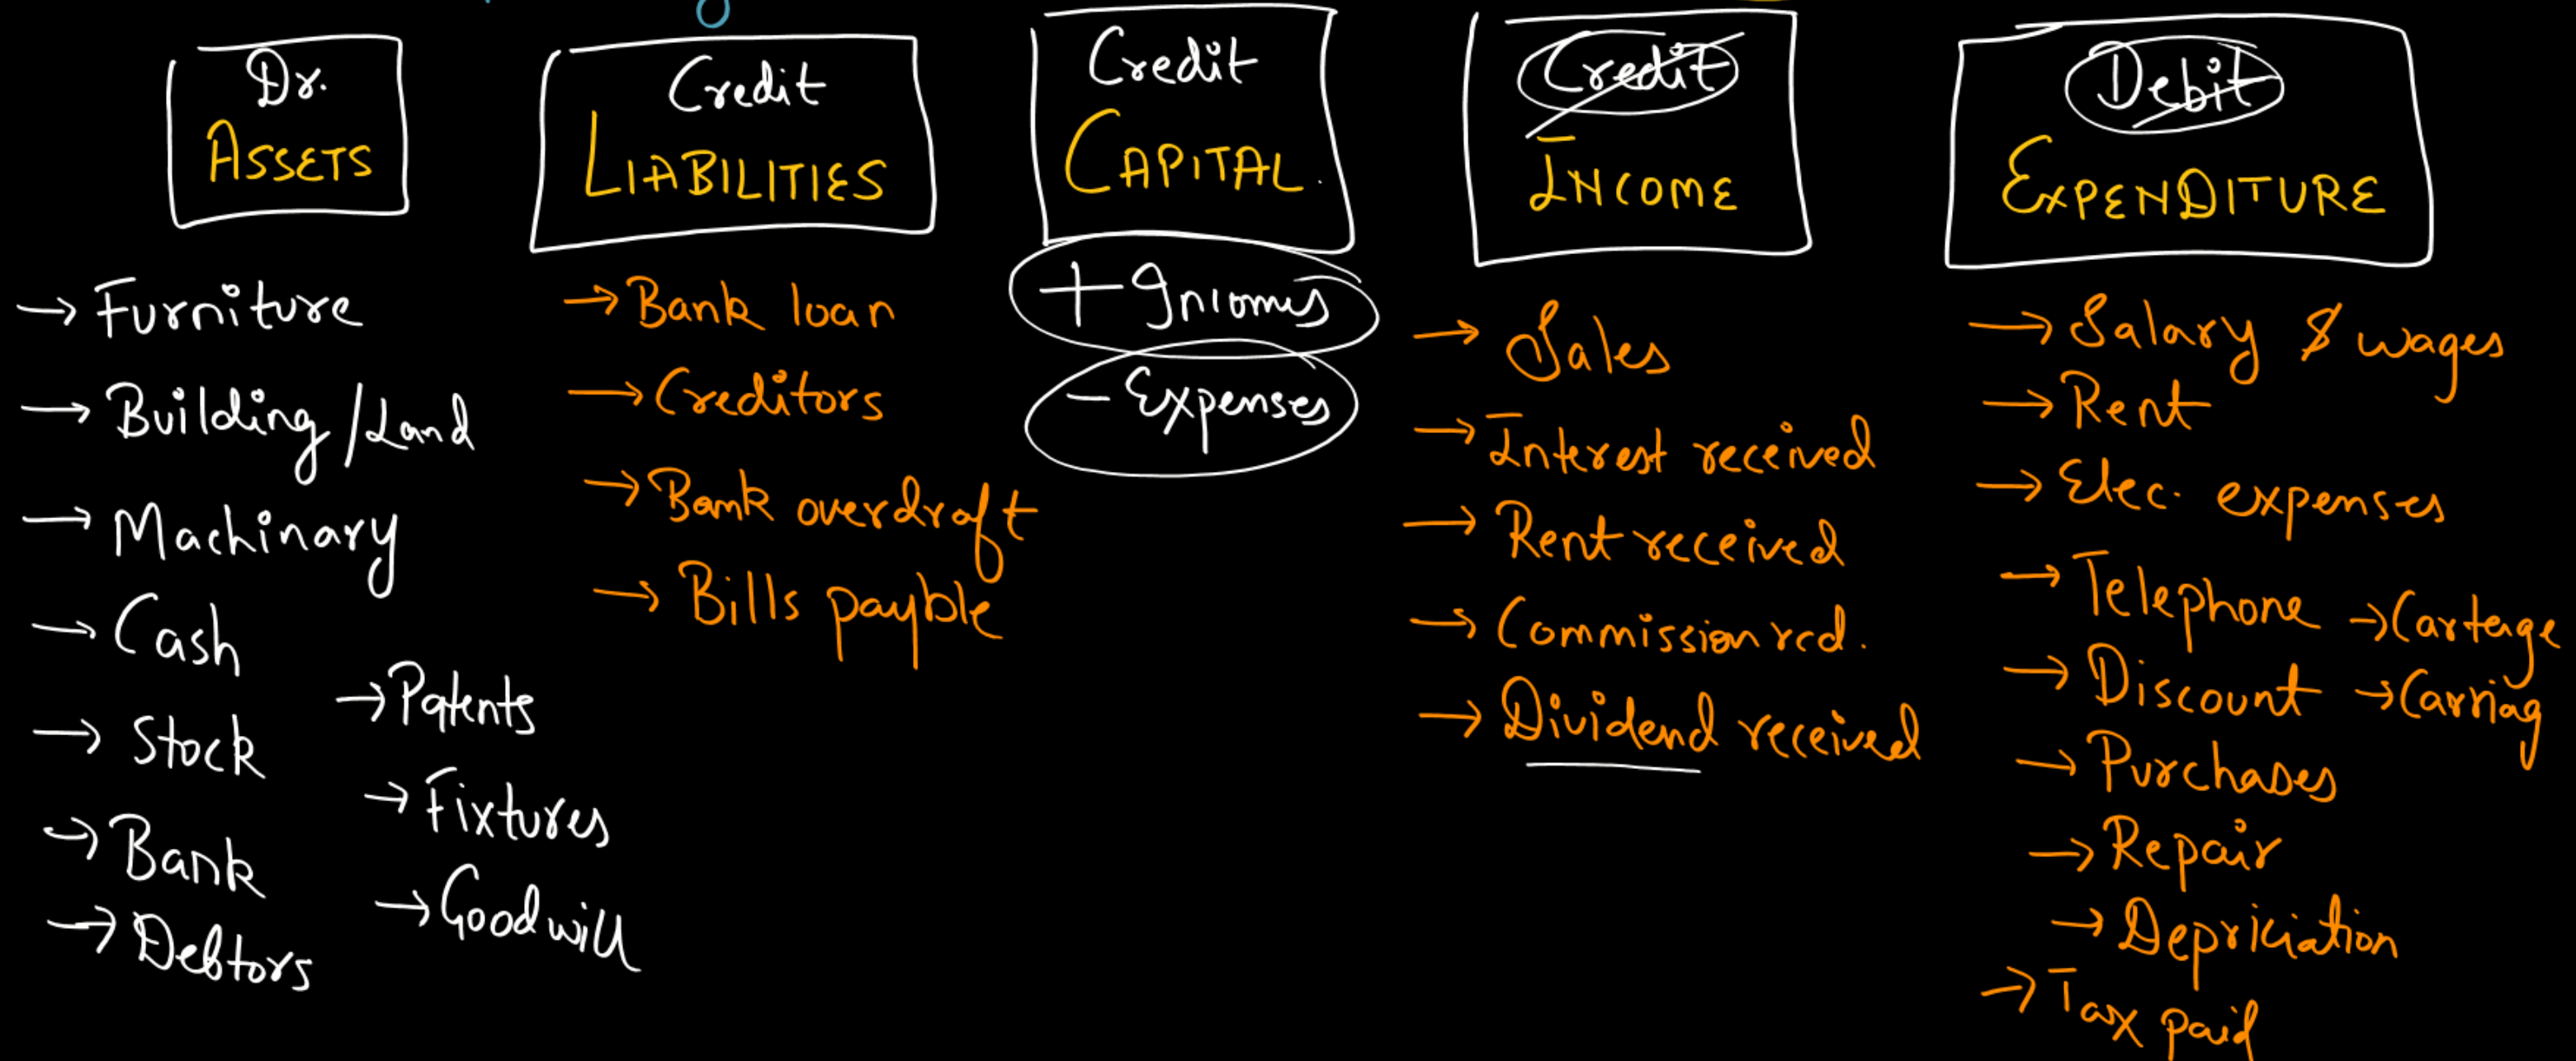 Dr.
ASSETS
→ Furniture
→ Building/Land
→ Machinary
→ Cash
→ Stock
→ Bank
→ Debtors
→ Patents
→ Fixtures
→ Goodwill
Credit
LIABILITIES
→ Bank loan
→ Creditors
→ Bank overdraft
→ Bills payble
Credit
CAPITAL.
+ Incomes
- Expenses
Credit
INCOME
→ Sales
→ Interest received
→ Rent received
→ Commission rcd.
→ Dividend received
Debit
EXPENDITURE
→ Salary & wages
→ Rent
→ Elec. expenses
→ Telephone
→ Discount
→ Purchases
→ Repair
→ Depriciation
→ Tax paid
→ Cartage
→ Carriag